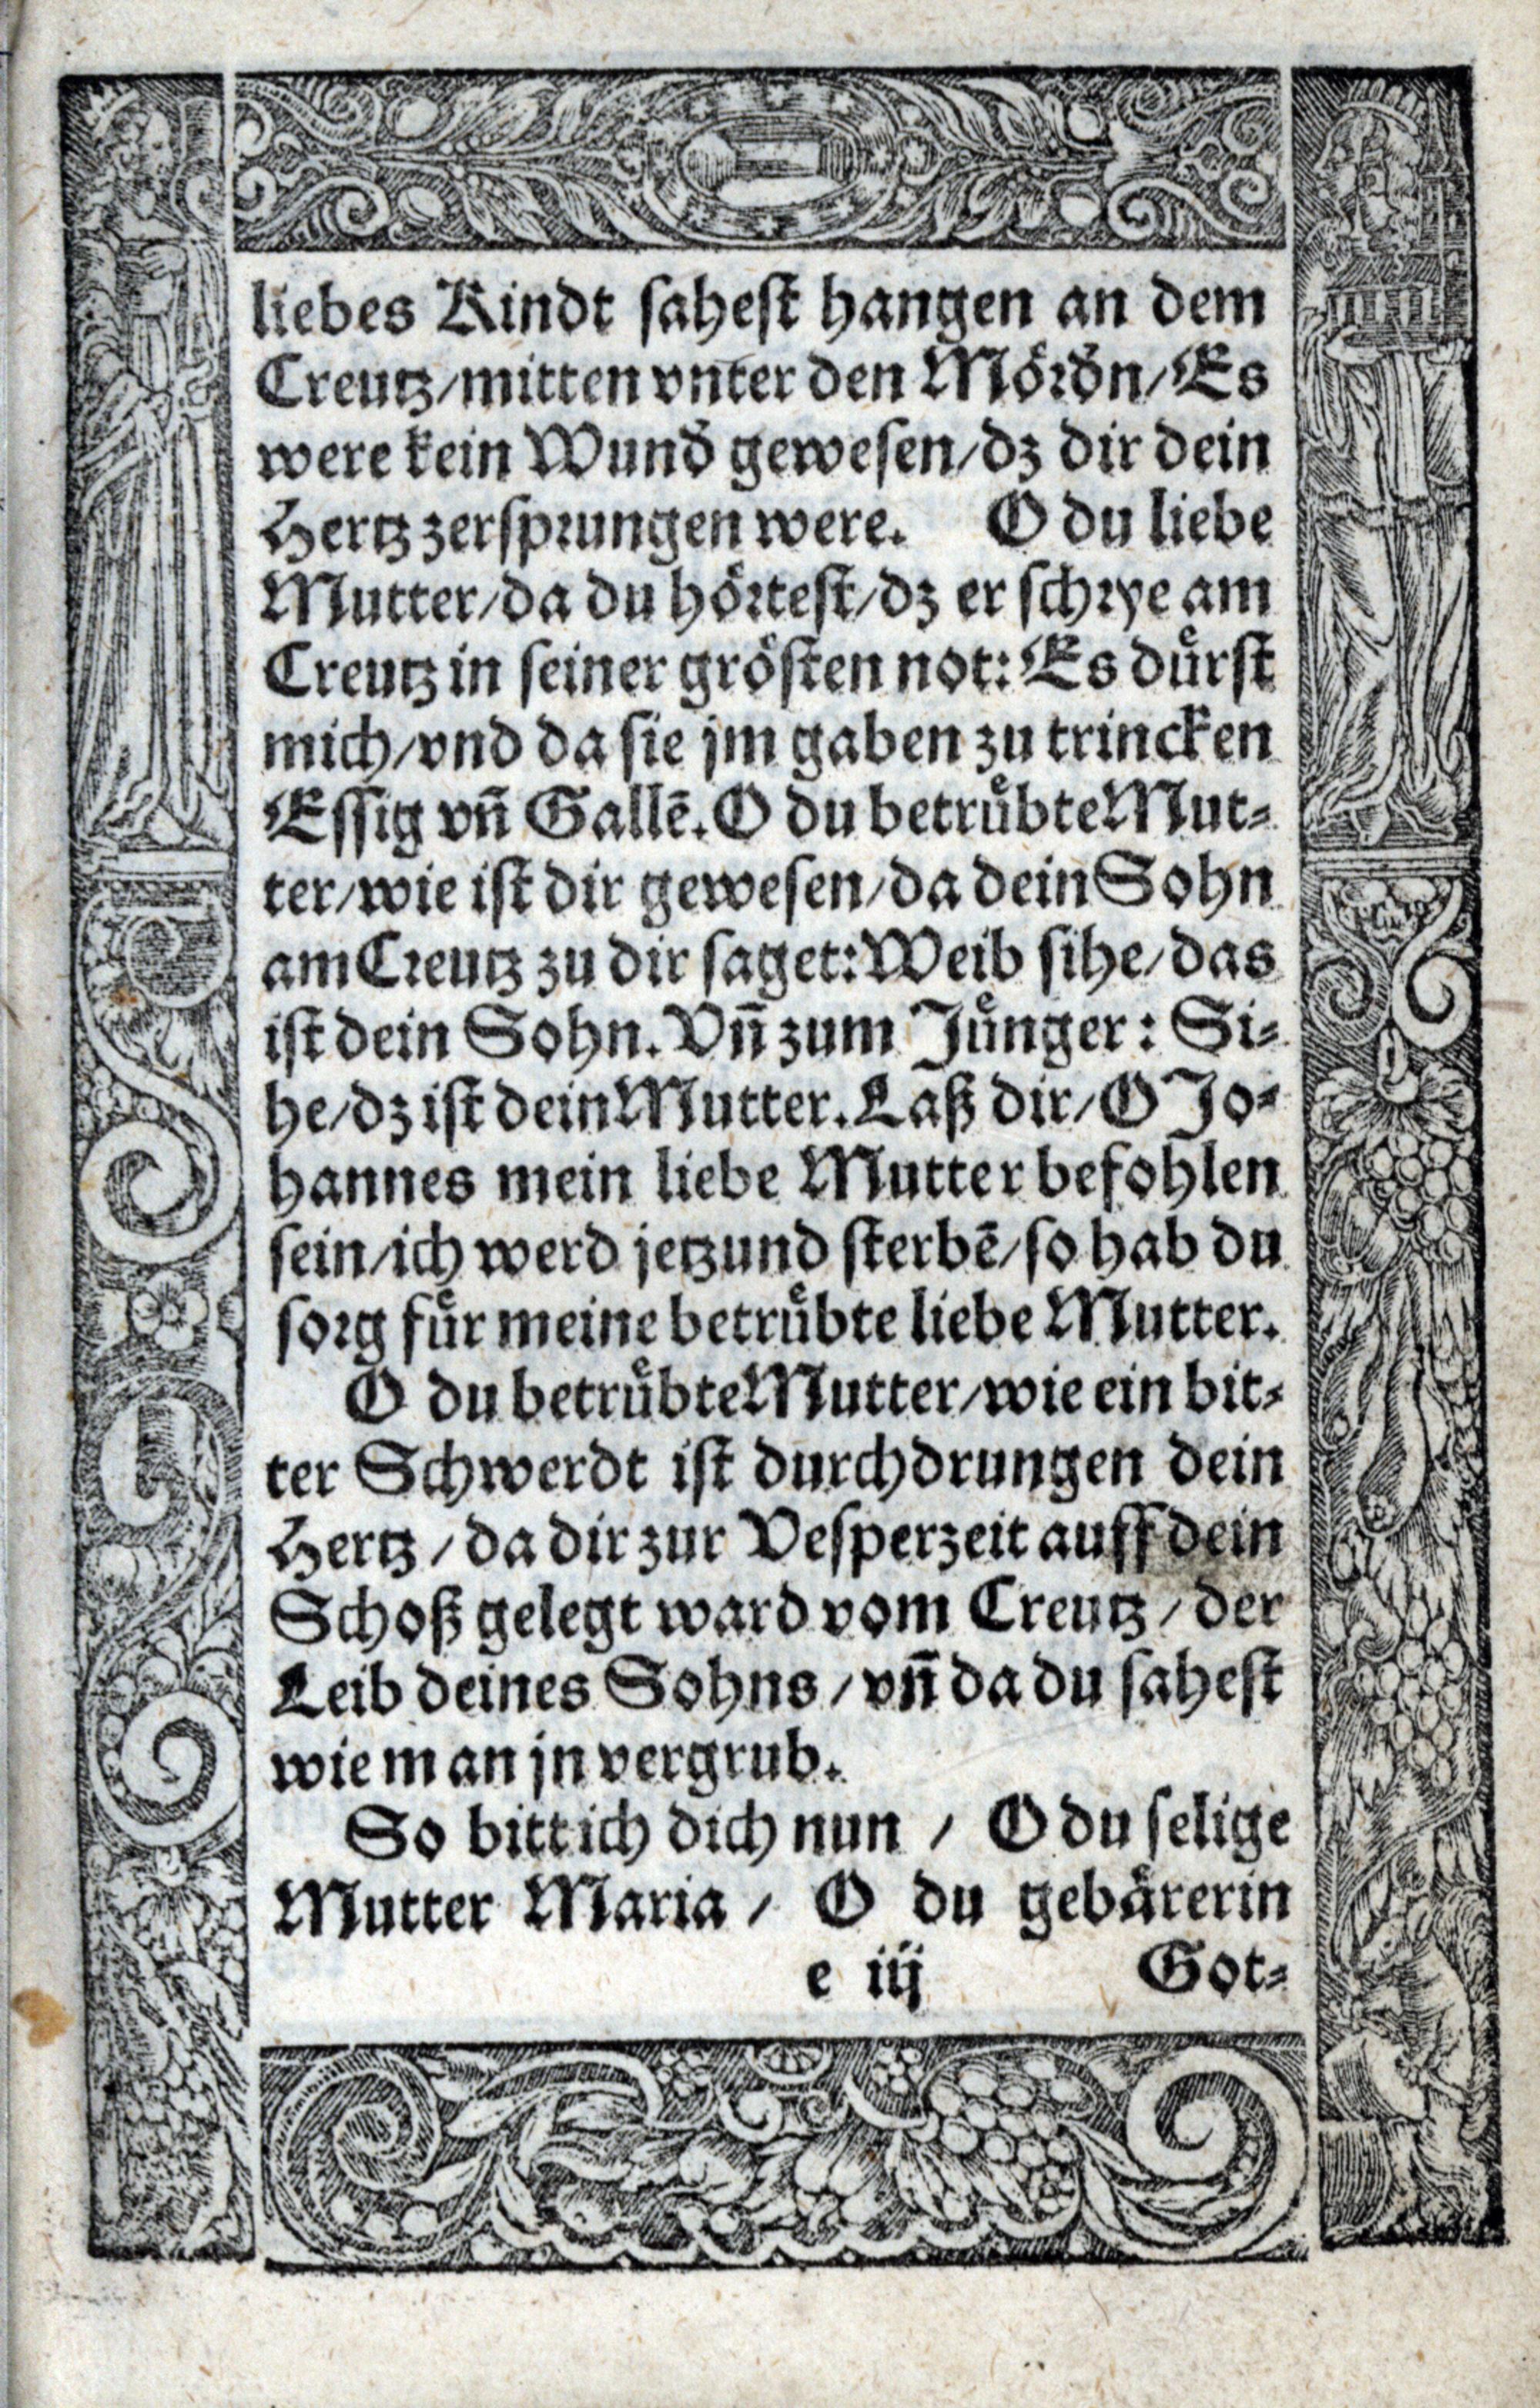 liebes Kindt sahest hangen an dem
Creutz/mitten vnter den Moͤrdn̄/Es
were kein Wund gewesen/dz dir dein
Hertz zersprungen were. O du liebe
Mutter/da du hoͤrtest/dz er schrye am
Creutz in seiner groͤsten not: Es duͤrst
mich/vnd da sie jm gaben zu trincken
Essig vn̄ Gallē. O du betruͤbte Mut⸗
ter/wie ist dir gewesen/da dein Sohn
am Creutz zu dir saget: Weib sihe/das
ist dein Sohn. Vn̄ zum Juͤnger: Si⸗
he/dz ist dein Mutter. Laß dir/O Jo⸗
hannes mein liebe Mutter befohlen
sein/ich werd jetzund sterbē/so hab du
sorg fuͤr meine betruͤbte liebe Mutter.
O du betruͤbte Mutter/wie ein bit⸗
ter Schwerdt ist durchdrungen dein
Hertz/da dir zur Vesperzeit auff dein
Schoß gelegt ward vom Creutz/der
Leib deines Sohns/vn̄ da du sahest
wie man jn vergrub.
So bitt ich dich nun/O du selige
Mutter Maria/O du gebaͤrerin
e iij Got⸗